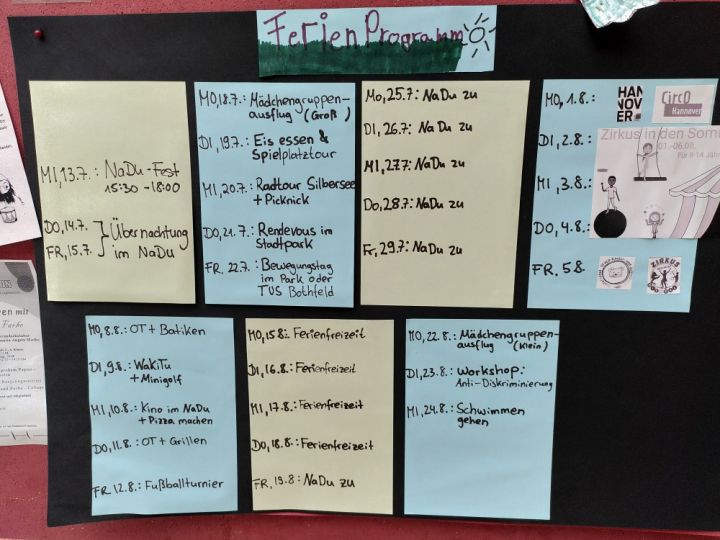 Ferien Programm
MI, 13.7.: NaDu-Fest
15:30 - 18:00
DO, 14.7.
FR, 15.7.
Übernachtung
im NaDu
MO, 18.7.: Mädchengruppen-
ausflug (Groß)
DI, 19.7.: Eis essen &
Spielplatztour
MI, 20.7.: Radtour Silbersee
+ Picknick
DO, 21.7.: Rendevous im
Stadtpark
FR. 22.7.: Bewegungstag
im Park oder
TUS Bothfeld
Mo, 25.7: NaDu zu
DI, 26.7.: NaDu zu
MI, 27.7.: NaDu zu
Do, 28.7.: NaDu zu
Fr, 29.7.: NaDu zu
MO, 1.8.:
DI, 2.8.:
MI, 3.8.:
DO, 4.8.:
FR. 5.8.
HAN
NOV
ER
CircO
Hannover
Zirkus in den Som
01.-06.08.
Für 8-14 Jahr
ZIRKUS
MO, 8.8.: OT + Batiken
DI, 9.8.: WakiTu
+ Minigolf
MI, 10.8.: Kino im NaDu
+ Pizza machen
DO, 11.8.: OT + Grillen
FR 12.8.: Fußballturnier
MO, 15.8.: Ferienfreizeit
DI, 16.8.: Ferienfreizeit
MI, 17.8.: Ferienfreizeit
DO, 18.8.: Ferienfreizeit
FR, 19.8: NaDu zu
MO, 22.8.: Mädchengruppen-
ausflug (Klein)
DI, 23.8.: Workshop:
Anti-Diskriminierung
MI, 24.8.: Schwimmen
gehen